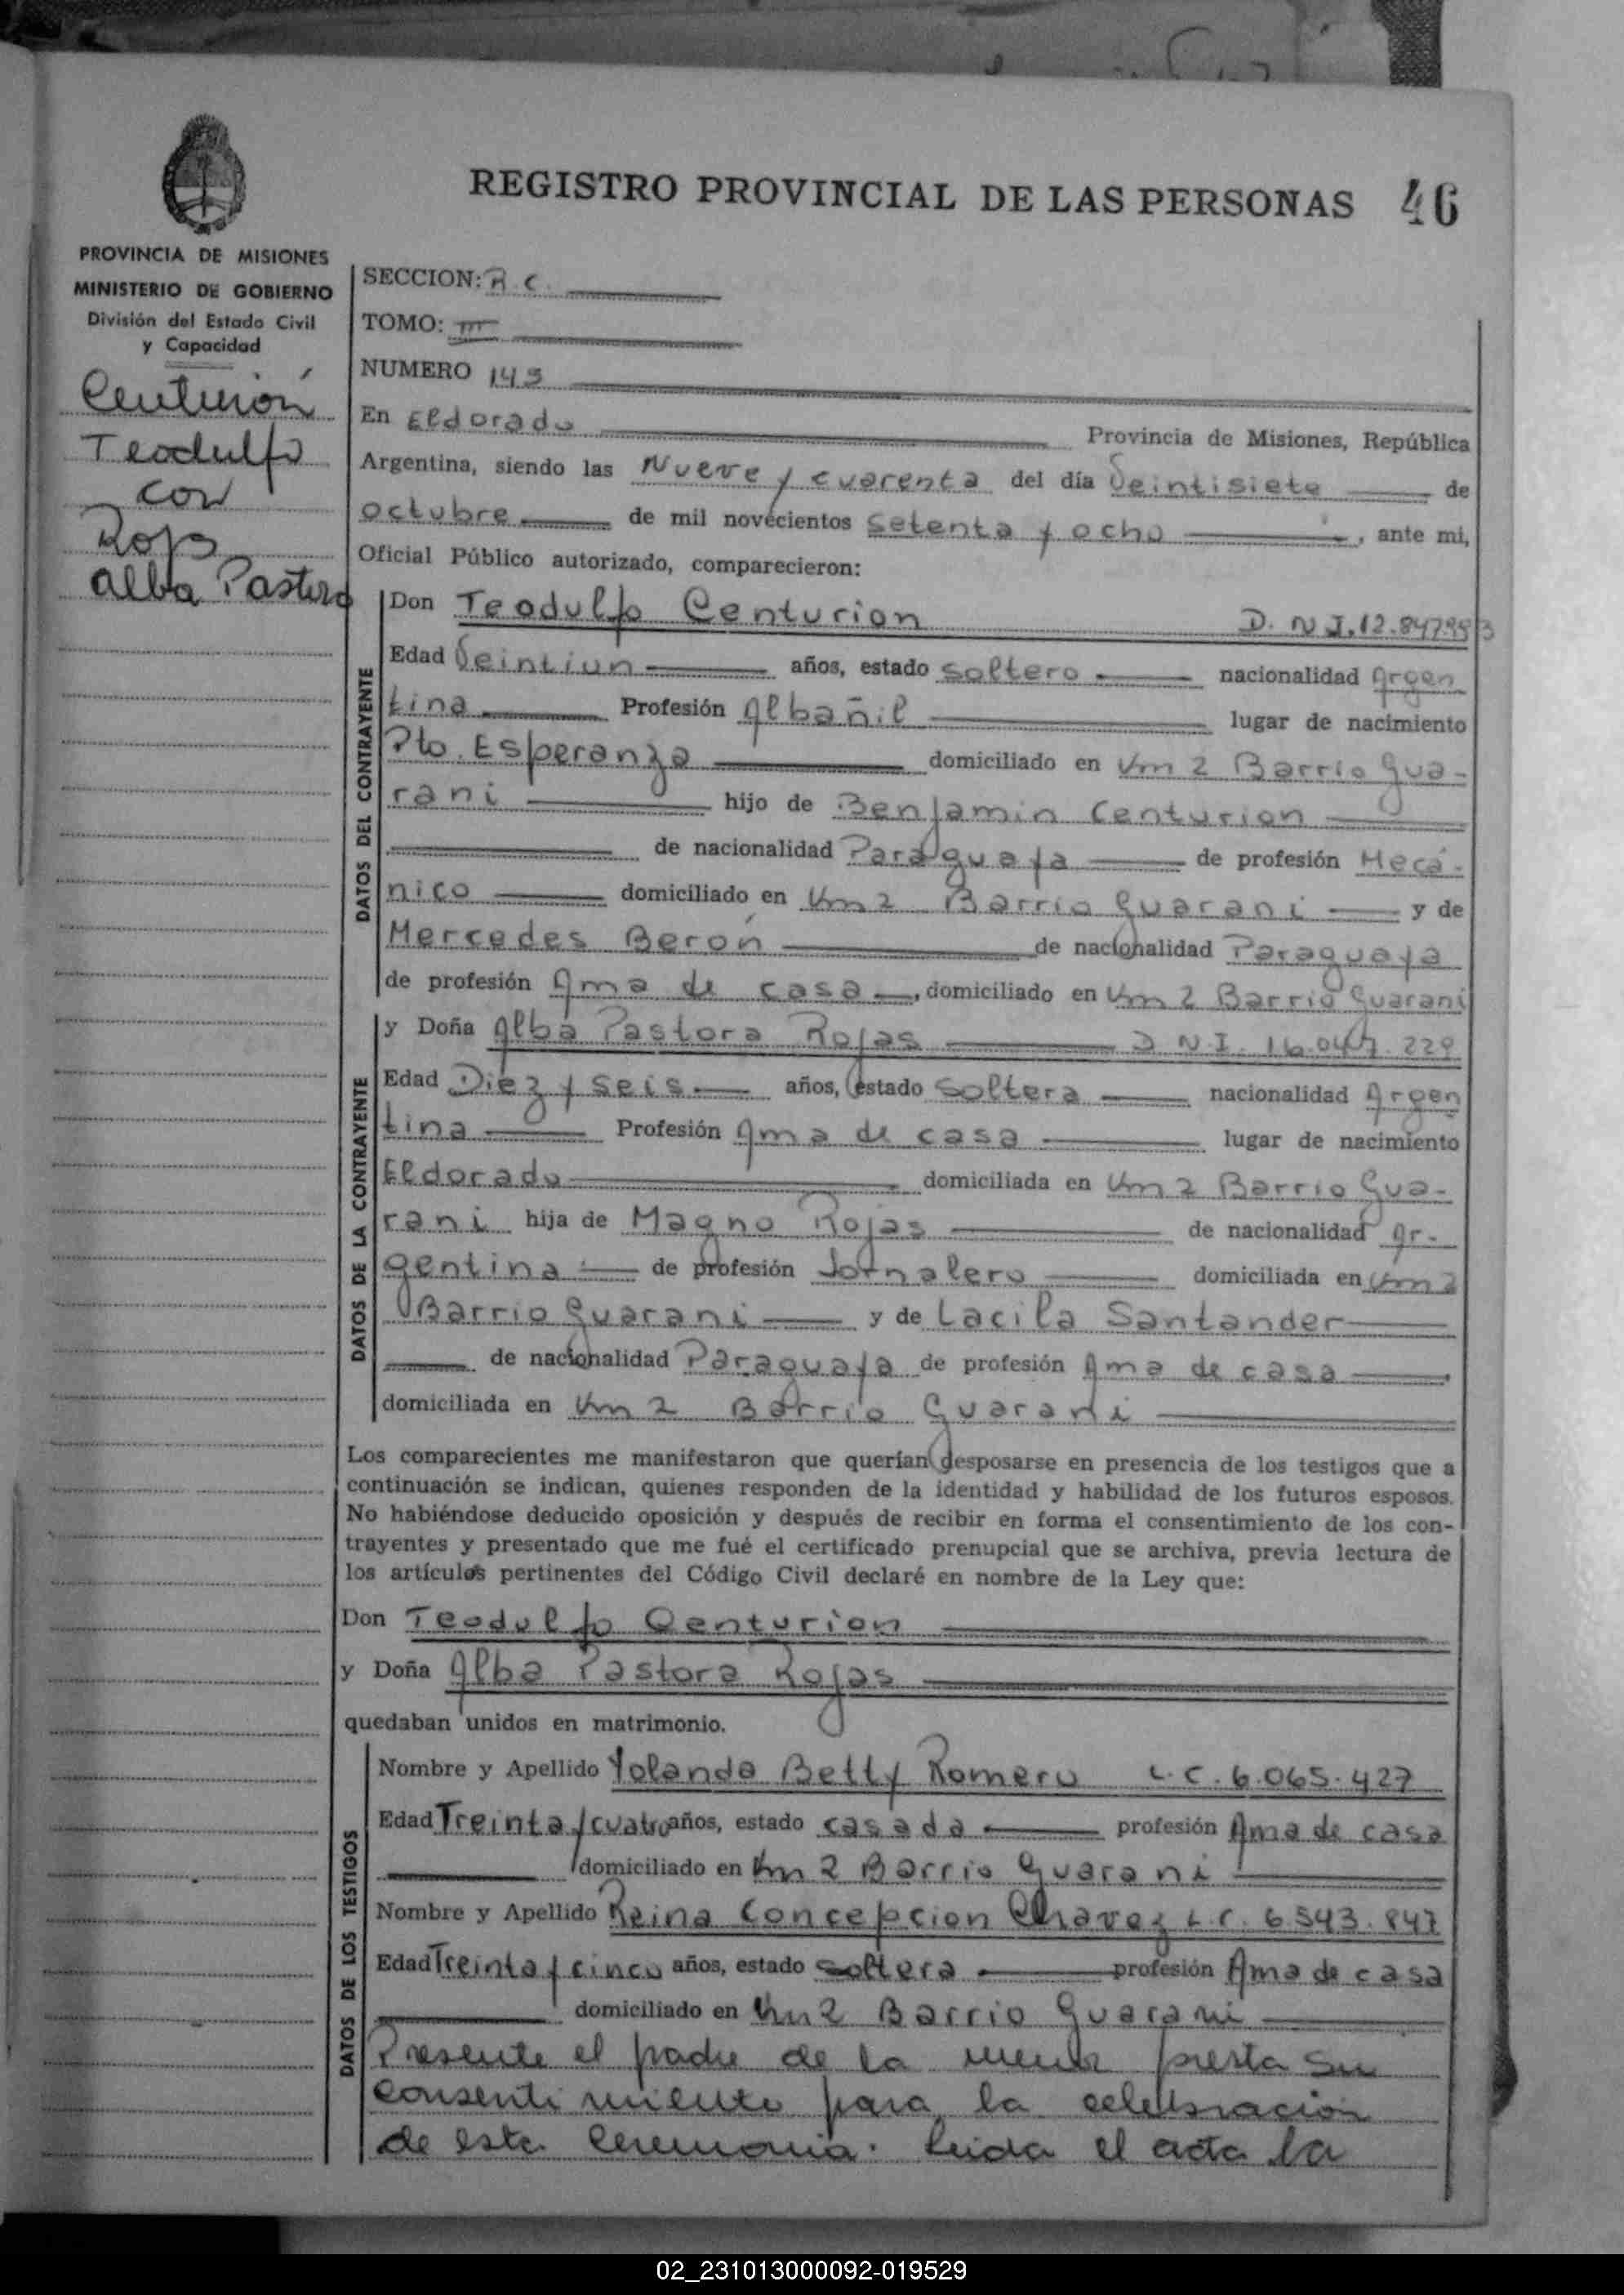 REGISTRO PROVINCIAL DE LAS PERSONAS 46
PROVINCIA DE MISIONES
MINISTERIO DE GOBIERNO
División del Estado Civil
y Capacidad
Centurión
Teodulfo
con
Rojas
Alba Pastora
SECCION: R.C.
TOMO: III
NUMERO 143
En Eldorado Provincia de Misiones, República
Argentina, siendo las Nueve y cuarenta del día Veintisiete de
octubre de mil novecientos setenta y ocho, ante mi,
Oficial Público autorizado, comparecieron:
DATOS DEL CONTRAYENTE
Don Teodulfo Centurion D.N.I. 12.847.993
Edad Veintiun años, estado soltero nacionalidad Argen
tina Profesión Albañil lugar de nacimiento
Pto. Esperanza domiciliado en Km 2 Barrio Gua-
rani hijo de Benjamin Centurion
de nacionalidad Paraguaya de profesión Mecá-
nico domiciliado en Km 2 Barrio Guarani y de
Mercedes Berón de nacionalidad Paraguaya
de profesión Ama de casa, domiciliado en Km 2 Barrio Guarani
DATOS DE LA CONTRAYENTE
y Doña Alba Pastora Rojas D.N.I. 16.047.229
Edad Diez y seis años, estado soltera nacionalidad Argen
tina Profesión Ama de casa lugar de nacimiento
Eldorado domiciliada en Km 2 Barrio Gua-
rani hija de Magno Rojas de nacionalidad Ar-
gentina de profesión Jornalero domiciliada en Km 2
Barrio Guarani y de Lacila Santander
de nacionalidad Paraguaya de profesión Ama de casa
domiciliada en Km 2 Barrio Guarani
Los comparecientes me manifestaron que querían desposarse en presencia de los testigos que a
continuación se indican, quienes responden de la identidad y habilidad de los futuros esposos.
No habiéndose deducido oposición y después de recibir en forma el consentimiento de los con-
trayentes y presentado que me fué el certificado prenupcial que se archiva, previa lectura de
los artículos pertinentes del Código Civil declaré en nombre de la Ley que:
Don Teodulfo Centurion
y Doña Alba Pastora Rojas
quedaban unidos en matrimonio.
DATOS DE LOS TESTIGOS
Nombre y Apellido Yolanda Betty Romero L.C. 6.065.427
Edad Treinta y cuatro años, estado casada profesión Ama de casa
domiciliado en Km 2 Barrio Guarani
Nombre y Apellido Reina Concepcion Chavez L.C. 6.543.847
Edad Treinta y cinco años, estado soltera profesión Ama de casa
domiciliado en Km 2 Barrio Guarani
Presente el padre de la menor presta su
consentimiento para la celebración
de esta ceremonia. Leida el acta la
02_231013000092-019529